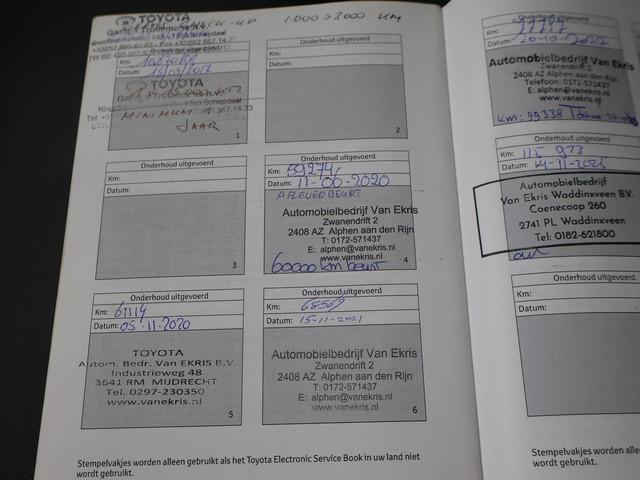 TOYOTA
1.000 > 2000 KM
Onderhoud uitgevoerd
Km:
Datum:
TOYOTA
MINIMUM 1
JAAR
1
Onderhoud uitgevoerd
Km:
Datum:
2
Onderhoud uitgevoerd
Km:
Datum:
3
Onderhoud uitgevoerd
Km: 59274
Datum: 11-06-2020
AFLEVERBEURT
Automobielbedrijf Van Ekris
Zwanendrift 2
2408 AZ Alphen aan den Rijn
T: 0172-571437
E: alphen@vanekris.nl
www.vanekris.nl
60000 km beurt
4
Onderhoud uitgevoerd
Km: 61114
Datum: 05-11-2020
TOYOTA
Autom. Bedr. Van EKRIS B.V.
Industrieweg 48
3641 RM MIJDRECHT
Tel. 0297-230350
www.vanekris.nl
5
Onderhoud uitgevoerd
Km:
Datum: 15-11-2021
Automobielbedrijf Van Ekris
Zwanendrift 2
2408 AZ Alphen aan den Rijn
T: 0172-571437
E: alphen@vanekris.nl
www.vanekris.nl
6
Stempelvakjes worden alleen gebruikt als het Toyota Electronic Service Book in uw land niet
wordt gebruikt.
Km:
Datum:
Automobielbedrijf
Zwanendrift 2
2408 AZ Alphen aan den Rijn
Telefoon: 0172-571
E: alphen@vanekris
www.vanekris.nl
km: 99338
Onderhoud uitgevoerd
Km: 115 973
Datum:
Automobielbedrijf
Van Ekris Waddinxveen B.V.
Coenecoop 260
2741 PL Waddinxveen
Tel: 0182-621800
Onderhoud uitgevoerd
Km:
Datum:
Stempelvakjes worden alleen geb
wordt gebruikt.